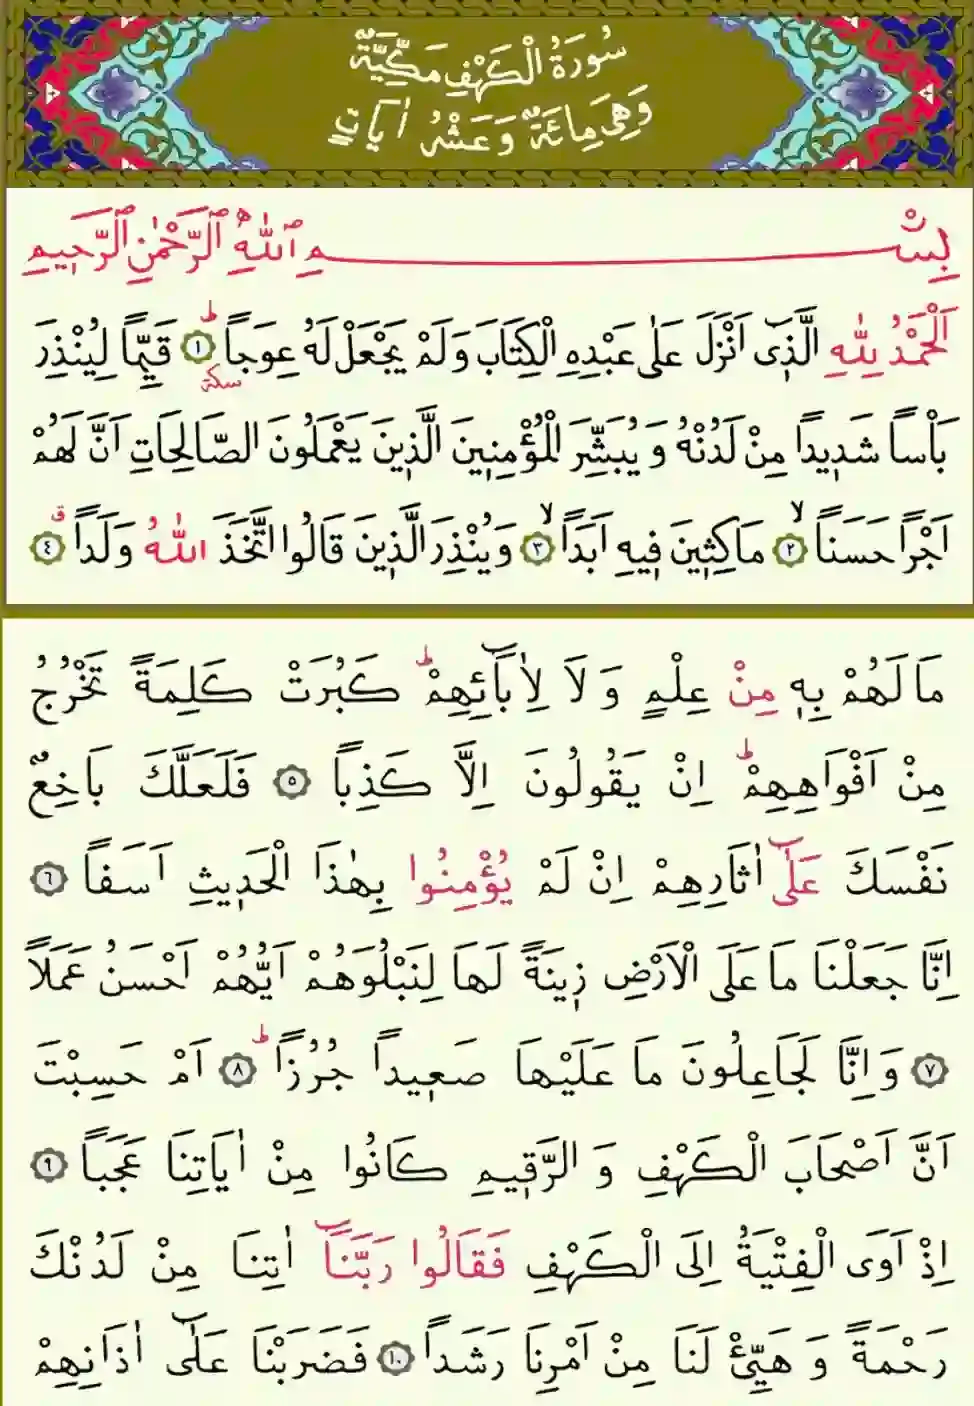 سُورَةُ الْكَهْفِ مَكِّيَّةٌ
وَهِيَ مِائَةٌ وَعَشْرُ اٰيَاتٍ
بِسْمِ اللّٰهِ الرَّحْمٰنِ الرَّحِيمِ
اَلْحَمْدُ لِلّٰهِ الَّذٖٓى اَنْزَلَ عَلٰى عَبْدِهِ الْكِتَابَ وَلَمْ يَجْعَلْ لَهُ عِوَجاًؕ ١ سكتة قَيِّماً لِيُنْذِرَ
بَاْساً شَدٖيداً مِنْ لَدُنْهُ وَيُبَشِّرَ الْمُؤْمِنٖينَ الَّذٖينَ يَعْمَلُونَ الصَّالِحَاتِ اَنَّ لَهُمْ
اَجْراً حَسَناًۙ ٢ مَاكِثٖينَ فٖيهِ اَبَداًۙ ٣ وَيُنْذِرَ الَّذٖينَ قَالُوا اتَّخَذَ اللّٰهُ وَلَداً ق ٤
مَا لَهُمْ بِهٖ مِنْ عِلْمٍ وَلَا لِاٰبَٓائِهِمْؕ كَبُرَتْ كَلِمَةً تَخْرُجُ
مِنْ اَفْوَاهِهِمْؕ اِنْ يَقُولُونَ اِلَّا كَذِباً ٥ فَلَعَلَّكَ بَاخِعٌ
نَفْسَكَ عَلٰٓى اٰثَارِهِمْ اِنْ لَمْ يُؤْمِنُوا بِهٰذَا الْحَدٖيثِ اَسَفاً ٦
اِنَّا جَعَلْنَا مَا عَلَى الْاَرْضِ زٖينَةً لَهَا لِنَبْلُوَهُمْ اَيُّهُمْ اَحْسَنُ عَمَلاً
٧ وَاِنَّا لَجَاعِلُونَ مَا عَلَيْهَا صَعٖيداً جُرُزاًؕ ٨ اَمْ حَسِبْتَ
اَنَّ اَصْحَابَ الْكَهْفِ وَالرَّقٖيمِ كَانُوا مِنْ اٰيَاتِنَا عَجَباً ٩
اِذْ اَوَى الْفِتْيَةُ اِلَى الْكَهْفِ فَقَالُوا رَبَّنَٓا اٰتِنَا مِنْ لَدُنْكَ
رَحْمَةً وَهَيِّئْ لَنَا مِنْ اَمْرِنَا رَشَداً ١٠ فَضَرَبْنَا عَلٰٓى اٰذَانِهِمْ